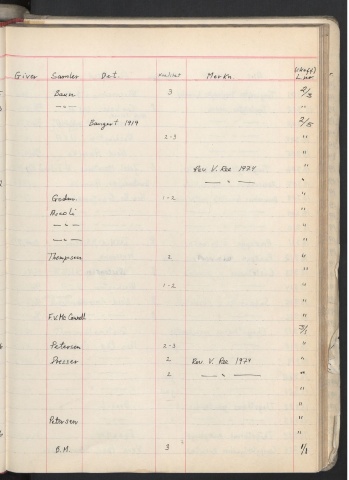 Giver Samler Det. Kvalitet Merkn.
Bauer 3 2/3
— " — "
Bangert 1919 2/5
2-3 "
"
Rev. V. Ree 1974 "
— " — "
Godm. 1-2 "
"
— " — "
— " — "
Thompson 2 "
"
1-2 "
"
3/1
Petersen 2-3 "
Dresser 2 Rev. V. Ree 1974 "
2 — " — "
"
Petersen "
B.M. 3 1/3